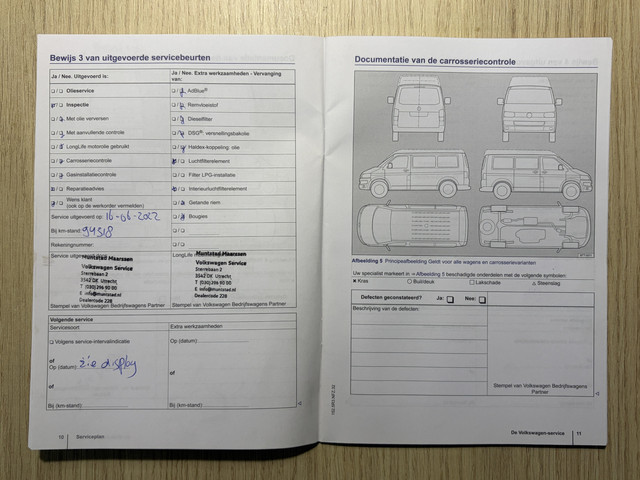 Bewijs 3 van uitgevoerde servicebeurten
Ja / Nee. Uitgevoerd is:
Ja / Nee. Extra werkzaamheden - Vervanging van:
Olieservice
AdBlue®
Inspectie
Remvloeistof
Met olie verversen
Dieselfilter
Met aanvullende controle
DSG®: versnellingsbakolie
LongLife motorolie gebruikt
Haldex-koppeling: olie
Carrosseriecontrole
Luchtfilterelement
Gasinstallatiecontrole
Filter LPG-installatie
Reparatieadvies
Interieurluchtfilterelement
Wens klant
(ook op de werkorder vermelden)
Getande riem
Service uitgevoerd op: 16-06-2022
Bougies
Bij km-stand: 94518
Rekeningnummer:
Service uitgevoerd door
LongLife
Muntstad Maarssen
Volkswagen Service
Sterrebaan 2
3542 DK Utrecht
T (030)296 90 00
E info@muntstad.nl
Dealercode 228
Muntstad Maarssen
Volkswagen Service
Sterrebaan 2
3542 DK Utrecht
T (030)296 90 00
E info@muntstad.nl
Dealercode 228
Stempel van Volkswagen Bedrijfswagens Partner
Stempel van Volkswagen Bedrijfswagens Partner
Volgende service
Servicesoort
Extra werkzaamheden
Volgens service-intervalindicatie
Op (datum):
of
Op (datum): zie display
of
of
Bij (km-stand):
Bij (km-stand):
10 Serviceplan
Documentatie van de carrosseriecontrole
Afbeelding 5 Principeafbeelding Geldt voor alle wagens en carrosserievarianten
Uw specialist markeert in ⇒ Afbeelding 5 beschadigde onderdelen met de volgende symbolen:
× Kras ○ Buil/deuk □ Lakschade △ Steenslag
Defecten geconstateerd? Ja: Nee:
Beschrijving van de defecten:
Stempel van Volkswagen Bedrijfswagens
Partner
De Volkswagen-service 11